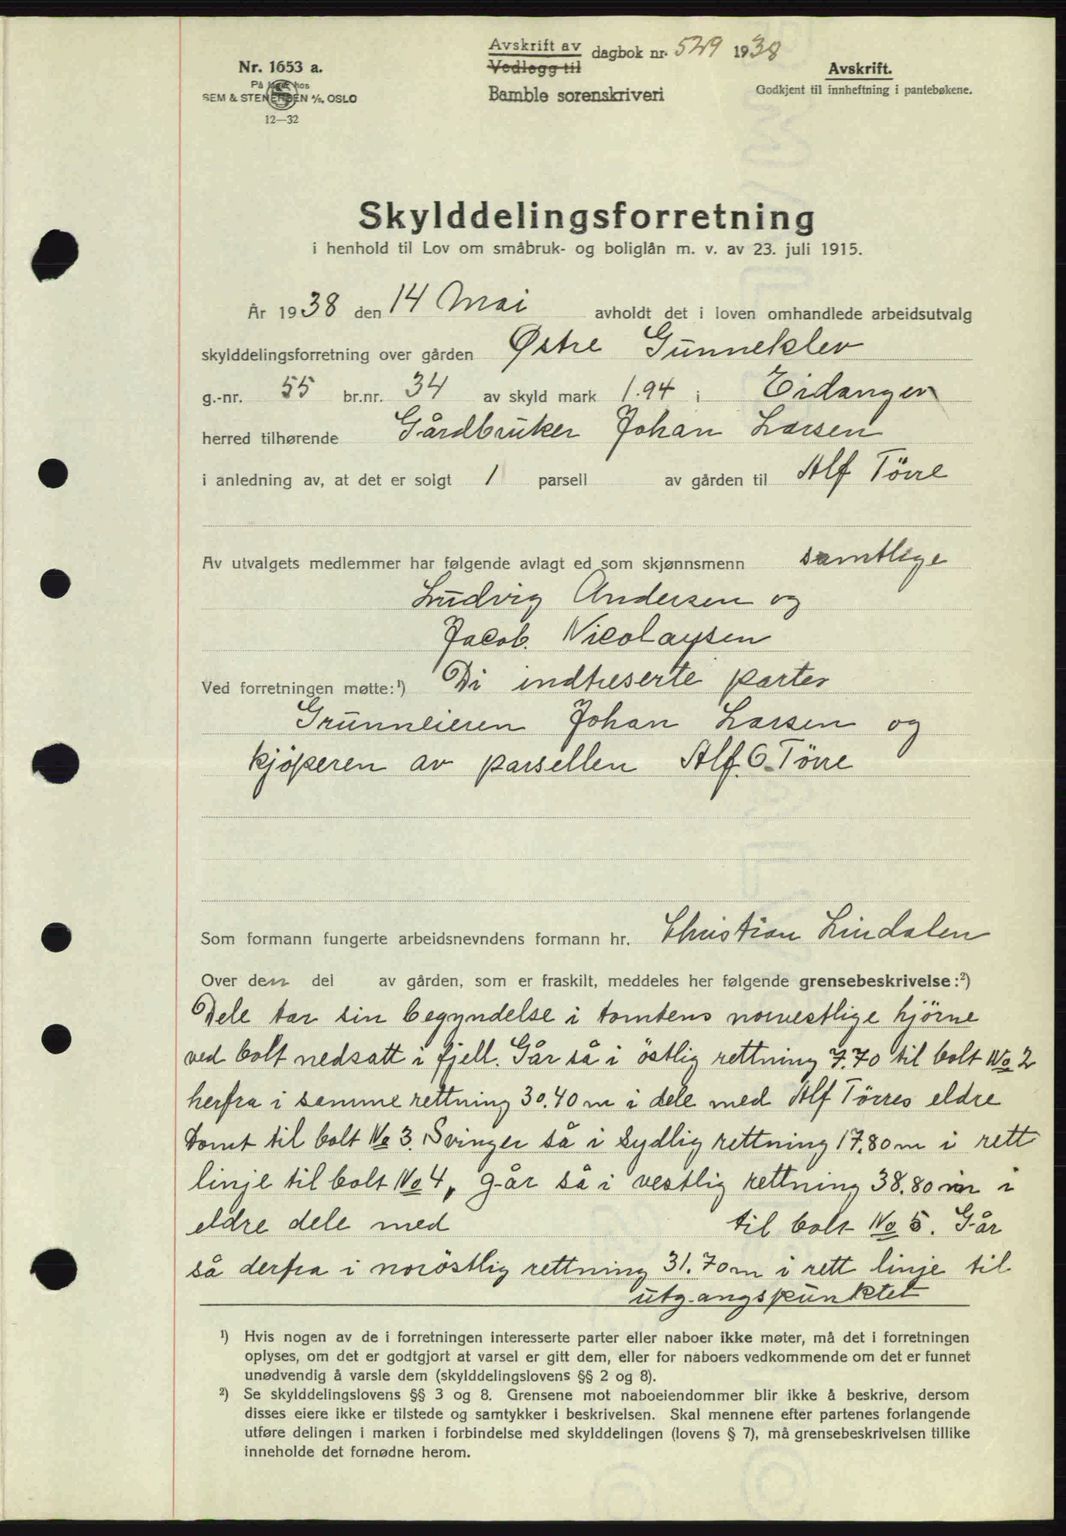 Nr. 1653 a.
På lager hos
SEM & STENERSEN A/S, OSLO
12—32
Avskrift av
Vedlegg til
dagbok nr. 529 1938
Bamble sorenskriveri
Avskrift.
Godkjent til innheftning i pantebøkene.
Skylddelingsforretning
i henhold til Lov om småbruk- og boliglån m. v. av 23. juli 1915.
År 1938 den 14 Mai avholdt det i loven omhandlede arbeidsutvalg
skylddelingsforretning over gården Østre Gunneklev
g.-nr. 55 br.nr. 34 av skyld mark 1.94 i Eidanger
herred tilhørende Gårdbruker Johan Larsen
i anledning av, at det er solgt 1 parsell av gården til Alf Törre
Av utvalgets medlemmer har følgende avlagt ed som skjønnsmenn samtlige
Ludvig Andersen og
Jacob Nicolaysen
Ved forretningen møtte:¹) Di indtreserte parter
Grunneieren Johan Larsen og
kjöperen av parsellen Alf. O. Törre
Som formann fungerte arbeidsnevndens formann hr. Christian Lindalen
Over den del av gården, som er fraskilt, meddeles her følgende grensebeskrivelse:²)
Dele tar sin begyndelse i tomtens norvestlige hjörne
ved bolt nedsatt i fjell. Går så i östlig rettning 7.70 til bolt No 2
herfra i samme rettning 30.40 m i dele med Alf Törres eldre
tomt til bolt No 3. Svinger så i sydlig rettning 17.80 m i rett
linje til bolt No 4, går så i vestlig rettning 38.80 m i
eldre dele med til bolt No 5. Går
så derfra i noröstlig rettning 31.70 m i rett linje til
utgangspunktet
¹) Hvis nogen av de i forretningen interesserte parter eller naboer ikke møter, må det i forretningen
oplyses, om det er godtgjort at varsel er gitt dem, eller for naboers vedkommende om det er funnet
unødvendig å varsle dem (skylddelingslovens §§ 2 og 8).
²) Se skylddelingslovens §§ 3 og 8. Grensene mot naboeiendommer blir ikke å beskrive, dersom
disses eiere ikke er tilstede og samtykker i beskrivelsen. Skal mennene efter partenes forlangende
utføre delingen i marken i forbindelse med skylddelingen (lovens § 7), må grensebeskrivelsen tillike
inneholde det fornødne herom.